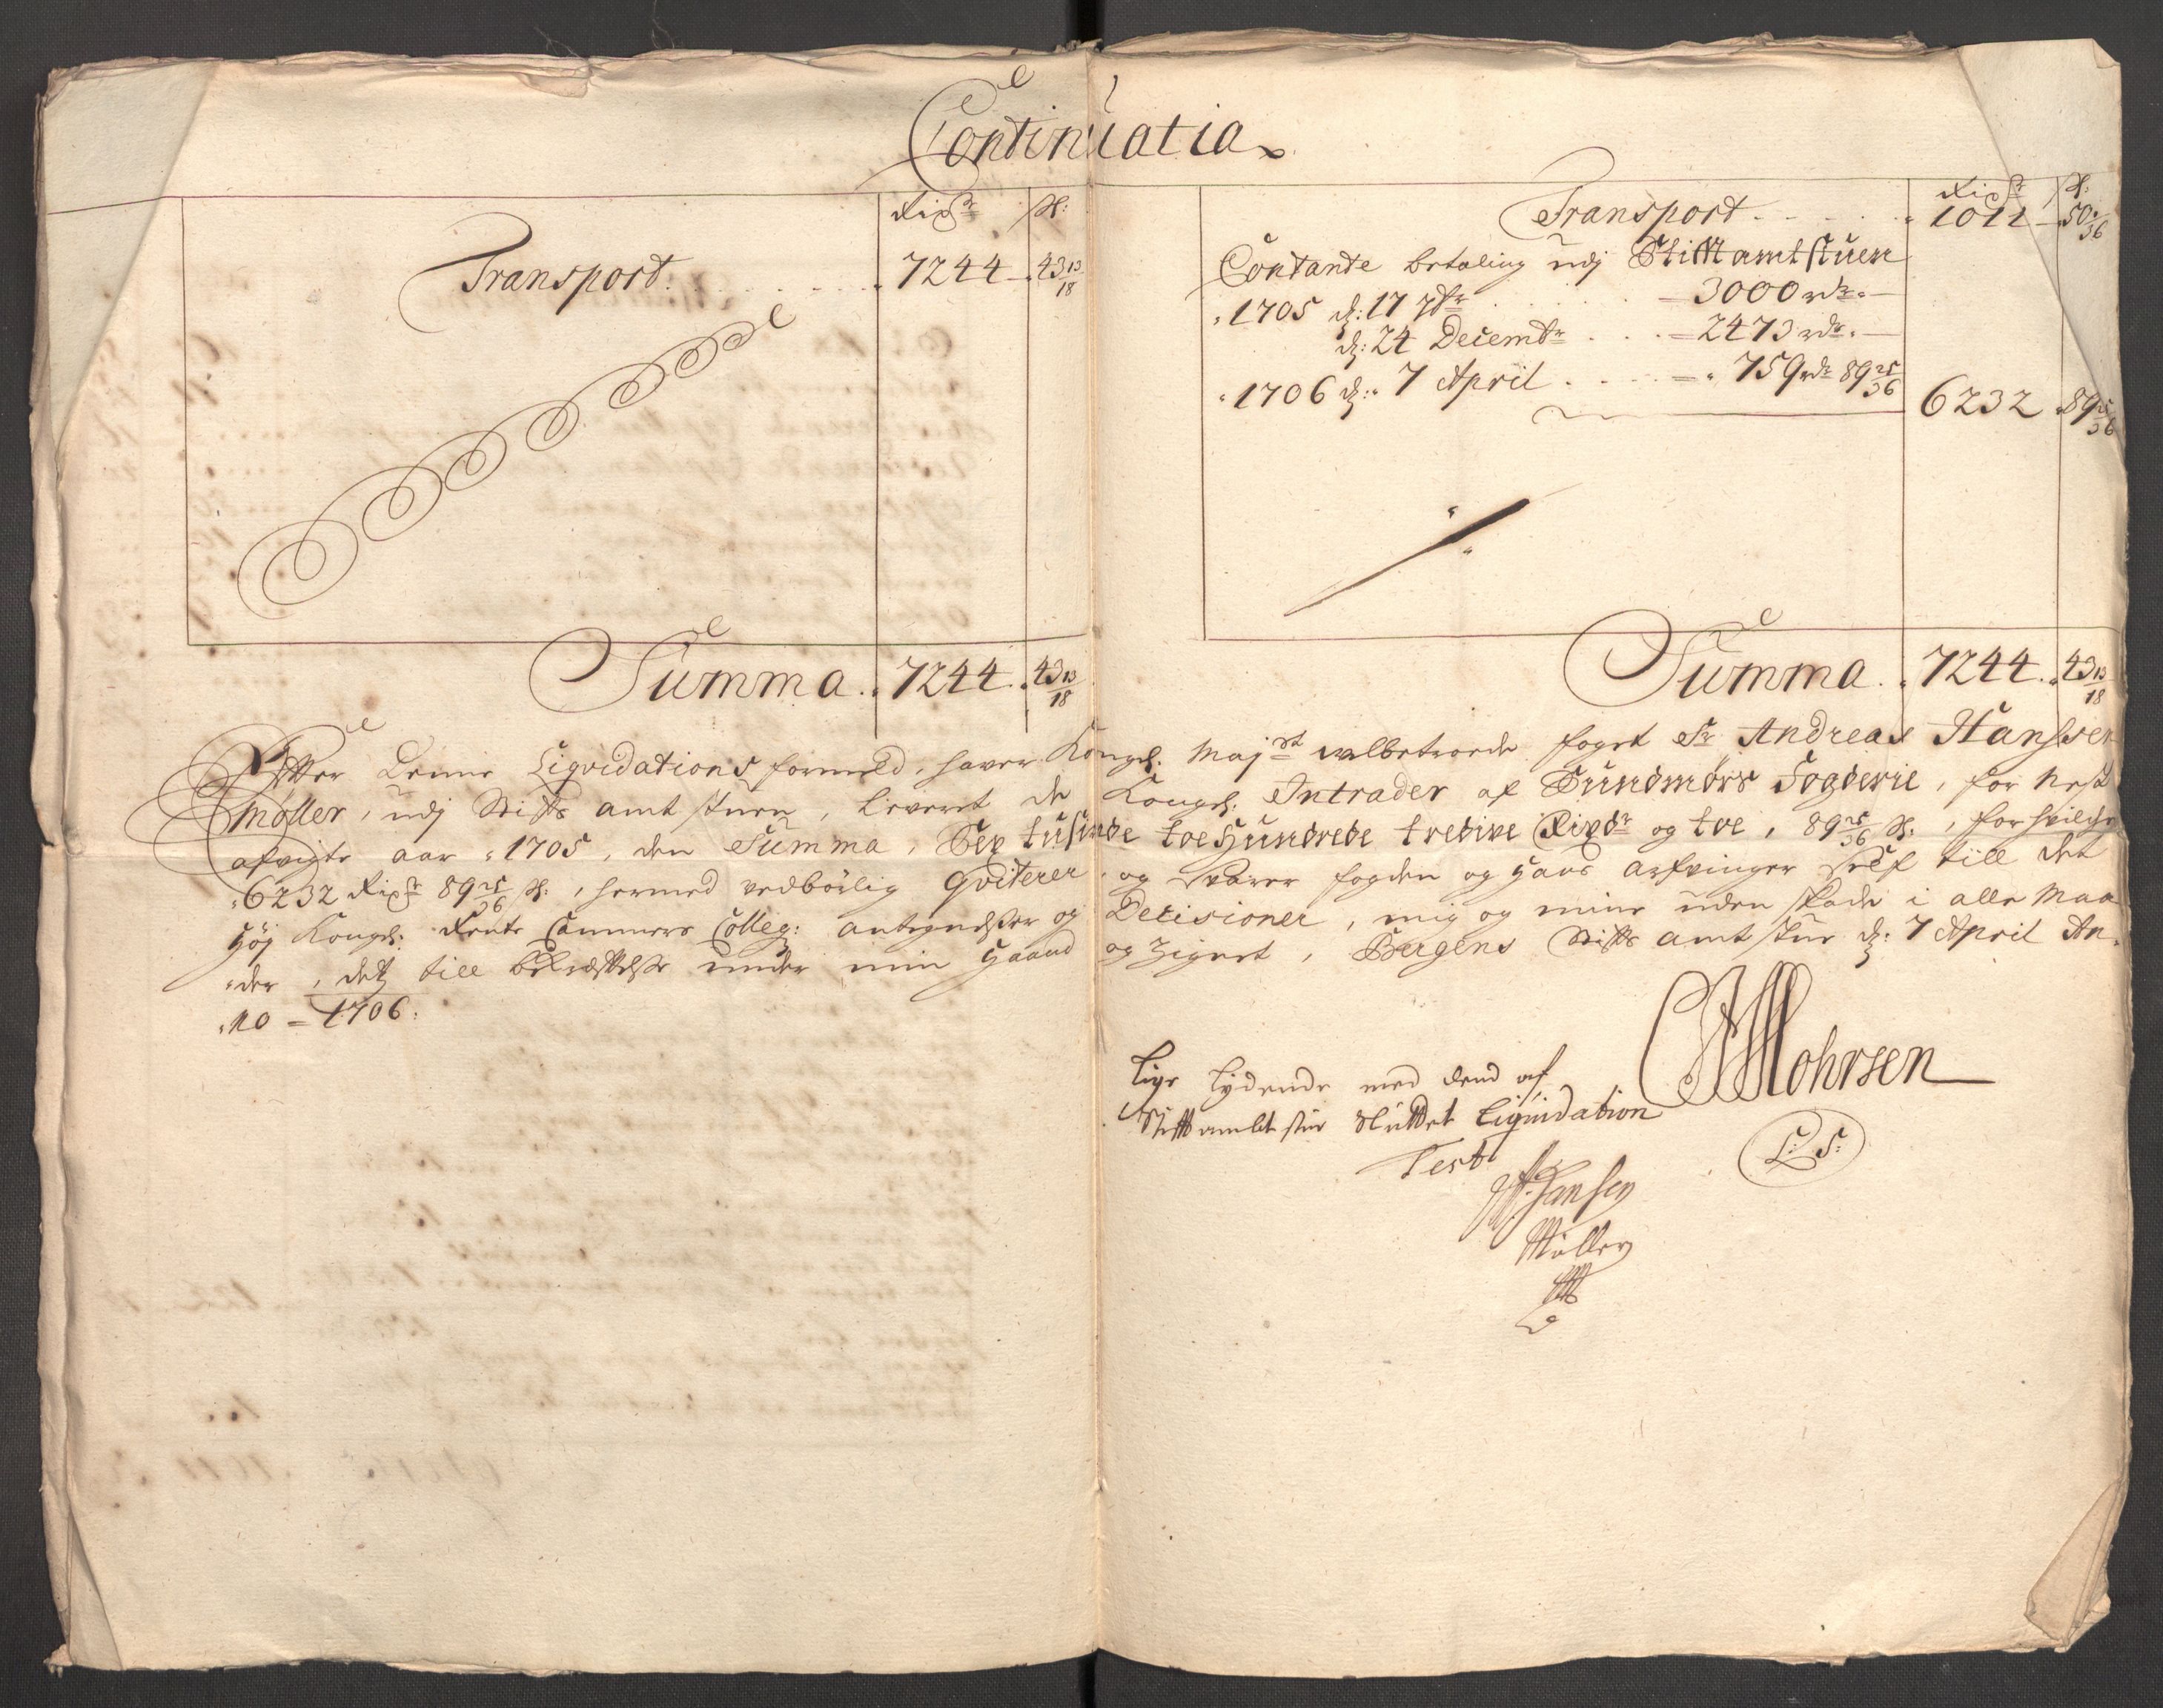 Continuatia
Rixdr ß:
Transport. 7244 - 43 13/18
Summa. 7244. 43 13/18
Rixdr ß:
Transport 1011 - 50 1/36
Contante betaling udj Stiftamtstuen
1705 d: 17 7br - 3000 rdr. -
d: 24 Decembr - 2473 rdr. -
1706 d: 7 April - 759 rdr 89 25/36
6232 89 25/36
Summa. 7244. 43 13/18
Efter denne Liqvidations formeld, haver Kongel. Majst velbetroede foget Sr Andreas Hanssen
Møller, udj Stifts amt stuen, leveret de Kongel. Intrader af Sundmørs Fogderie, for nest
afvigte aar 1705, den Summa, Sex tusinde toe Hundrede tredive Rixdr og toe, 89 25/36 ß., for hvilche
6232 Rixdr 89 25/36 ß., hermed vedbørlig Qviterer, og svarer fogden og hans arfvinger self till det
høj Kongel. Rente Cammers Colleg: antegnelser og Decisioner, mig og mine uden skade i alle maa
der, dets till bekræftelse under min haand og Zignet, Bergens Stifts amt stue d: 7 April An
no = 1706.
CFMohrsen
L: S:
Lige lydende med dend af
Stiftamtstue sluttet Liquidation
Test
AHansen
Møller